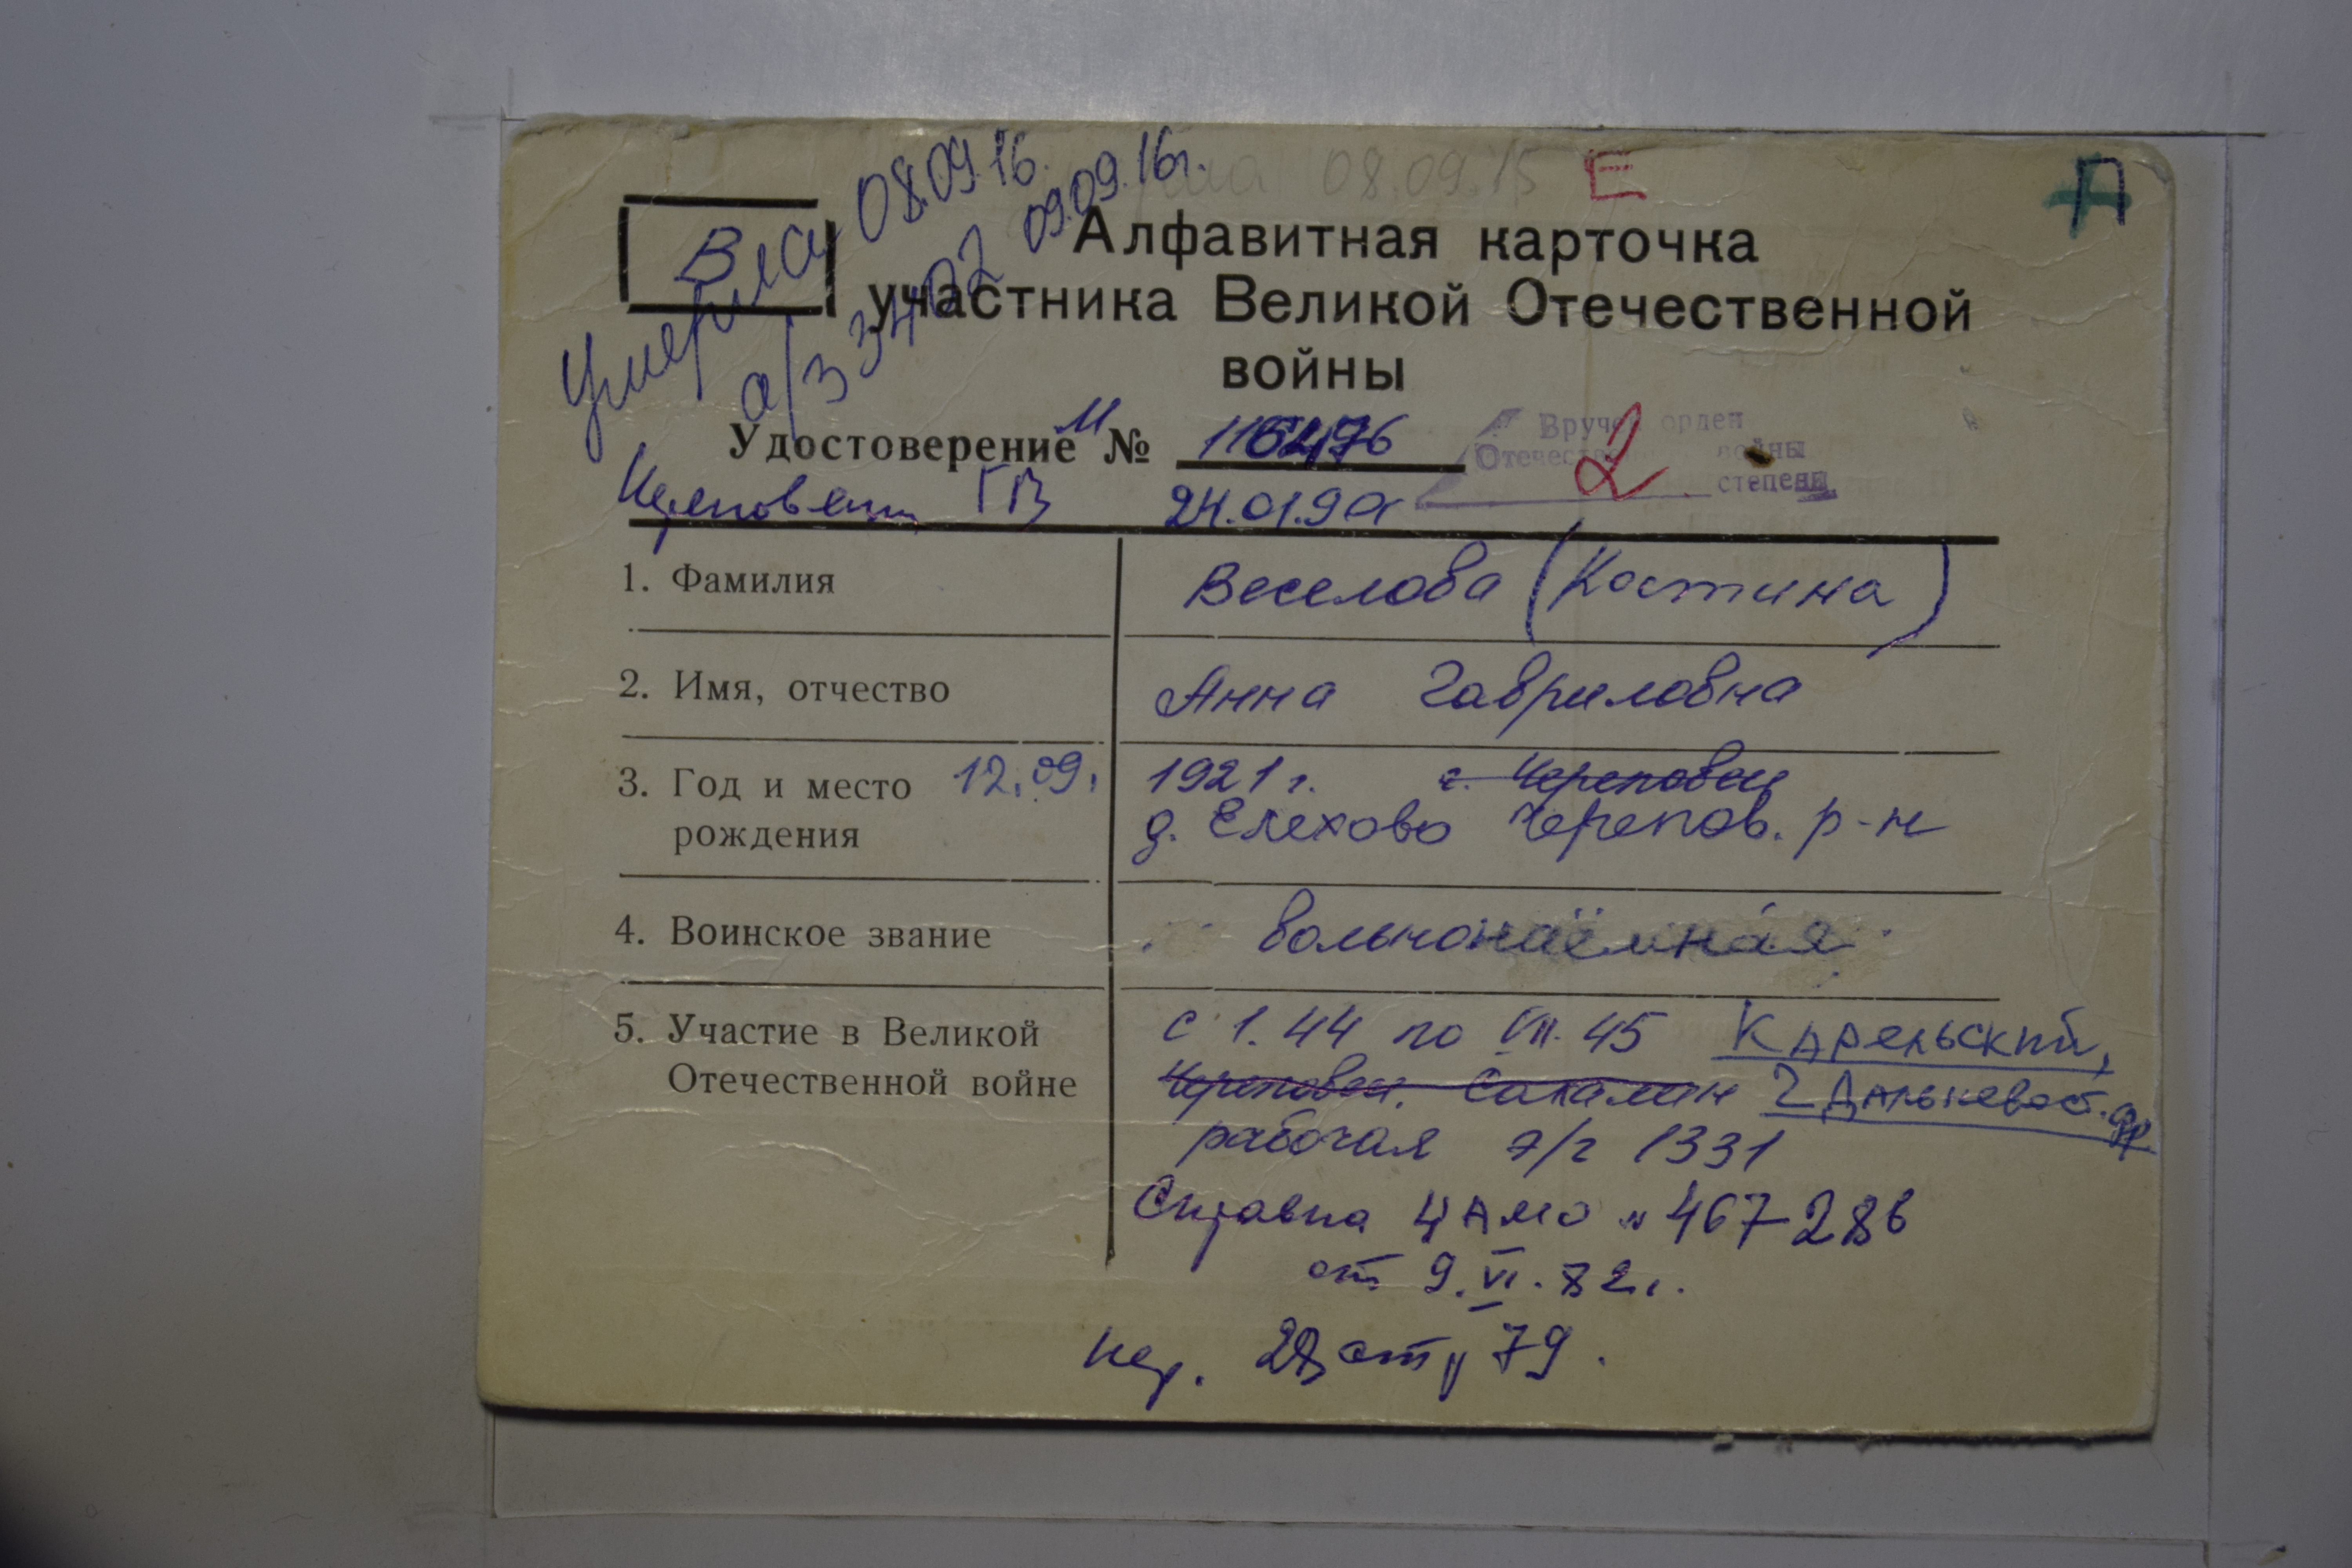 08.09.15 Е
В
Умерла 08.09.16.
а/з 3402 09.09.16г.
Алфавитная карточка
участника Великой Отечественной
войны
Удостоверение № 
Вручен орден
Отечественной войны
2 степени
ГВ 24.01.90г
1. Фамилия Веселова (Костина)
2. Имя, отчество Анна Гавриловна
3. Год и место 12.09. 1921 г. г. Череповец
рождения д. Елехово Черепов. р-н
4. Воинское звание вольнонаёмная
5. Участие в Великой с 1.44 по VII.45 Карельский,
Отечественной войне Череповец. Сахалин 2 Дальневост. фр
рабочая э/г 1331
Справка ЦАМО № 467286
от 9.VI.82г.
79.